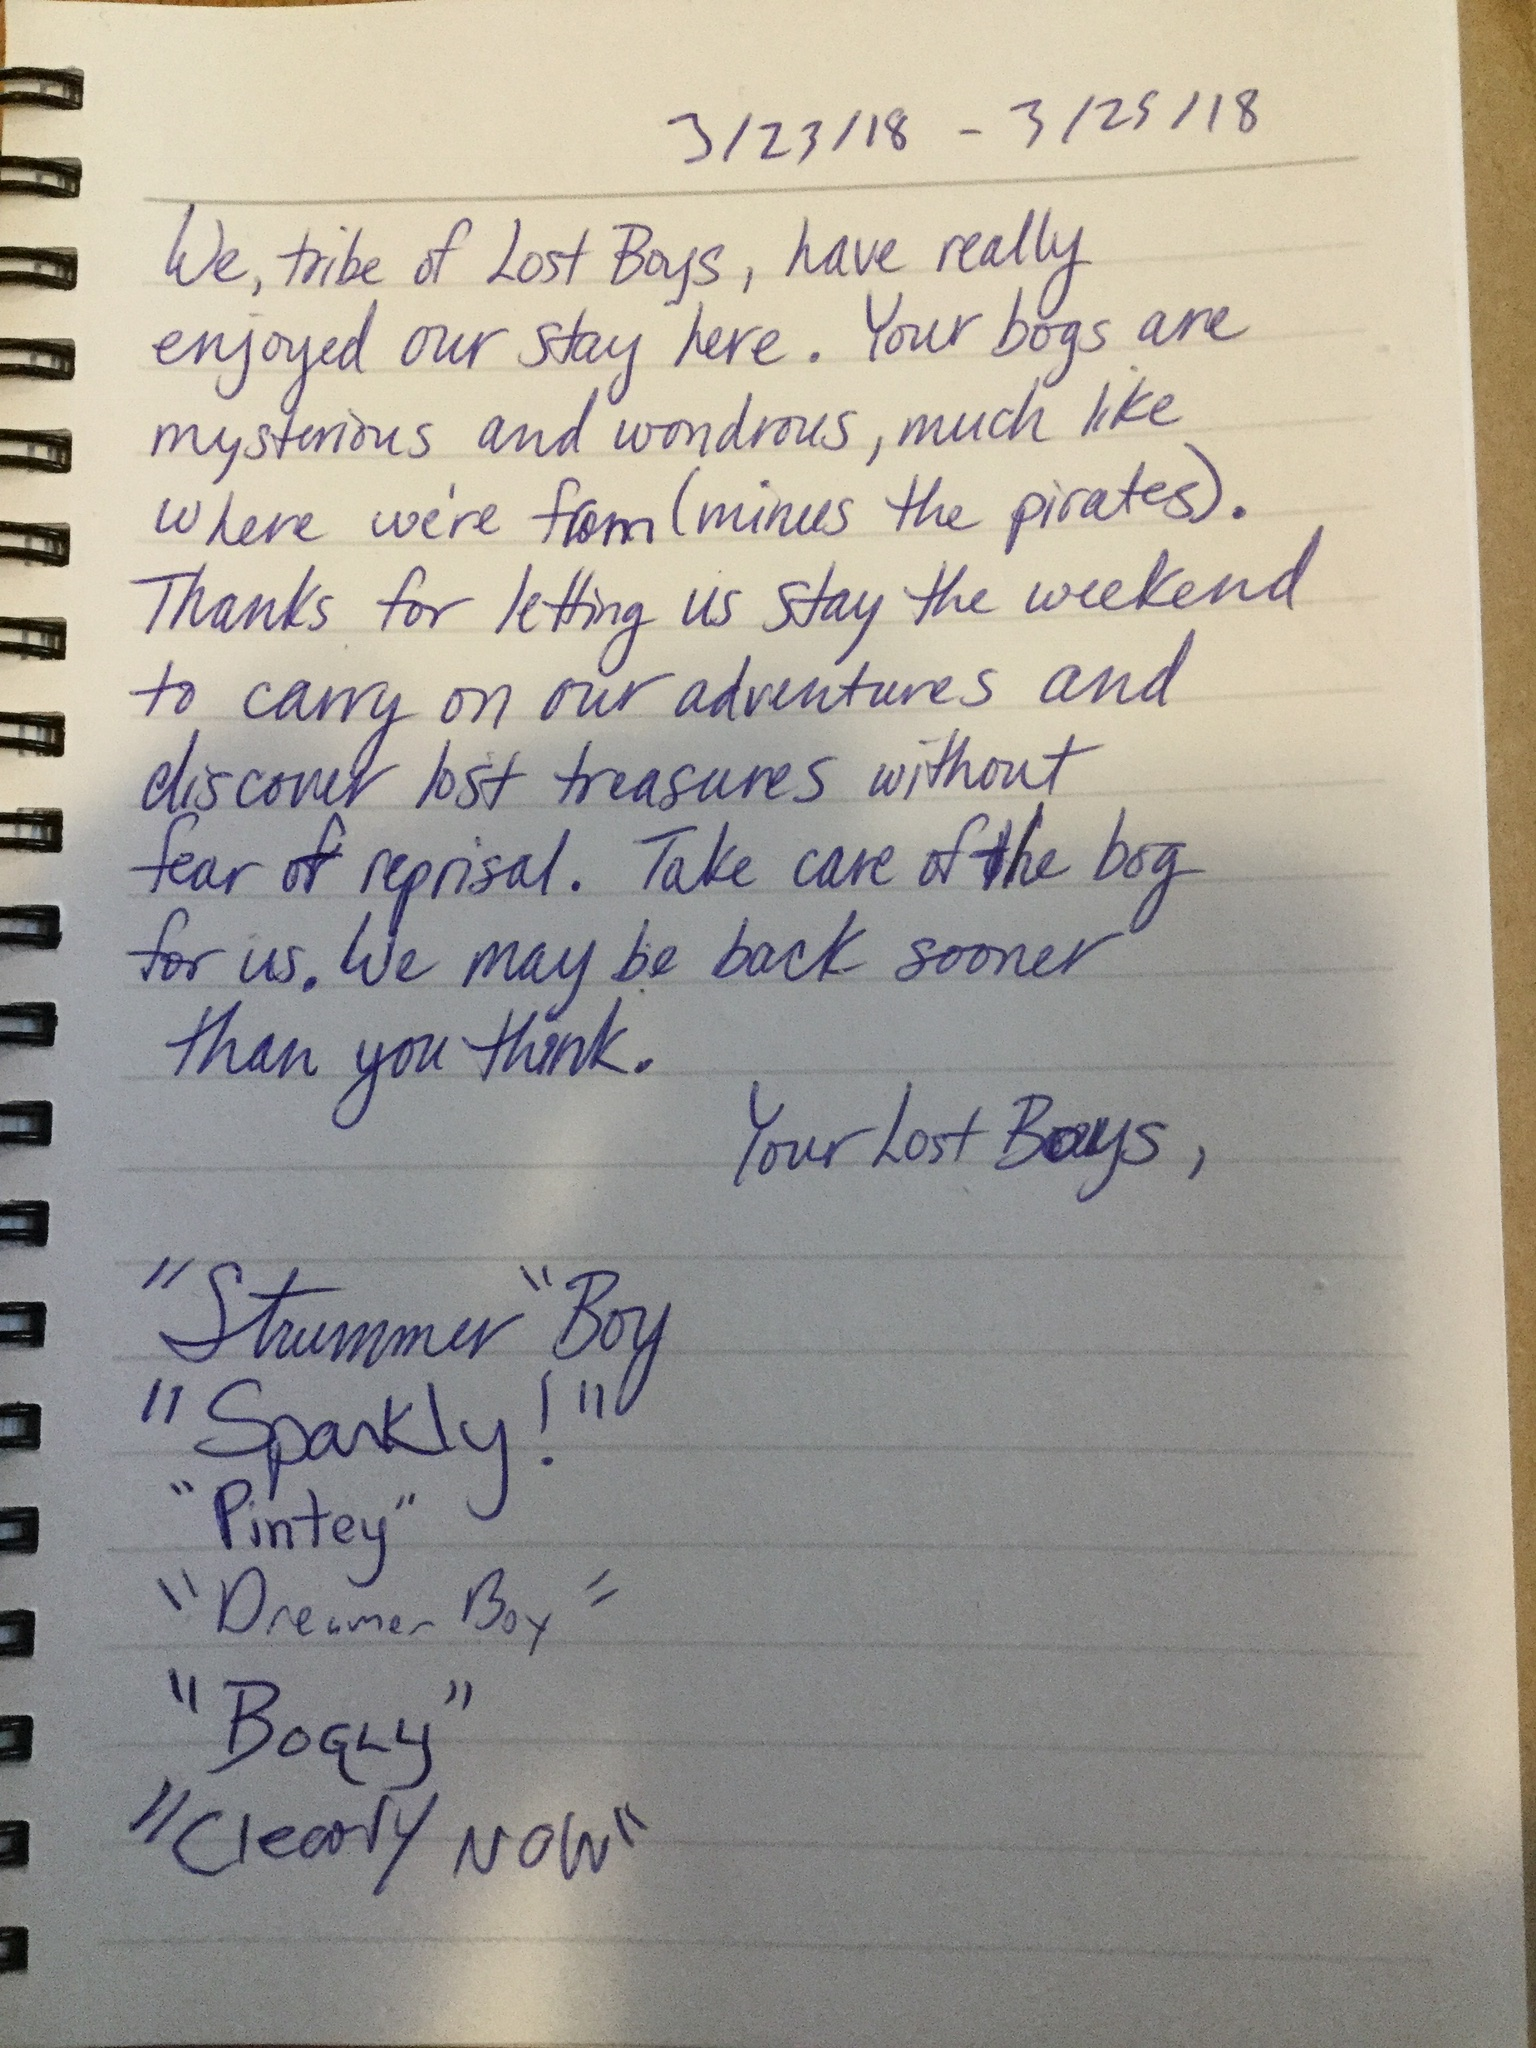 3/23/18 - 3/25/18
We, tribe of Lost Boys, have really
enjoyed our stay here. Your bogs are
mysterious and wondrous, much like
where we're from (minus the pirates).
Thanks for letting us stay the weekend
to carry on our adventures and
discover lost treasures without
fear of reprisal. Take care of the bog
for us. We may be back sooner
than you think.
Your Lost Boys,
"Strummer" Boy
"Sparkly!"
"Pintey"
"Dreamer Boy"
"Bogly"
"Clearly Now"